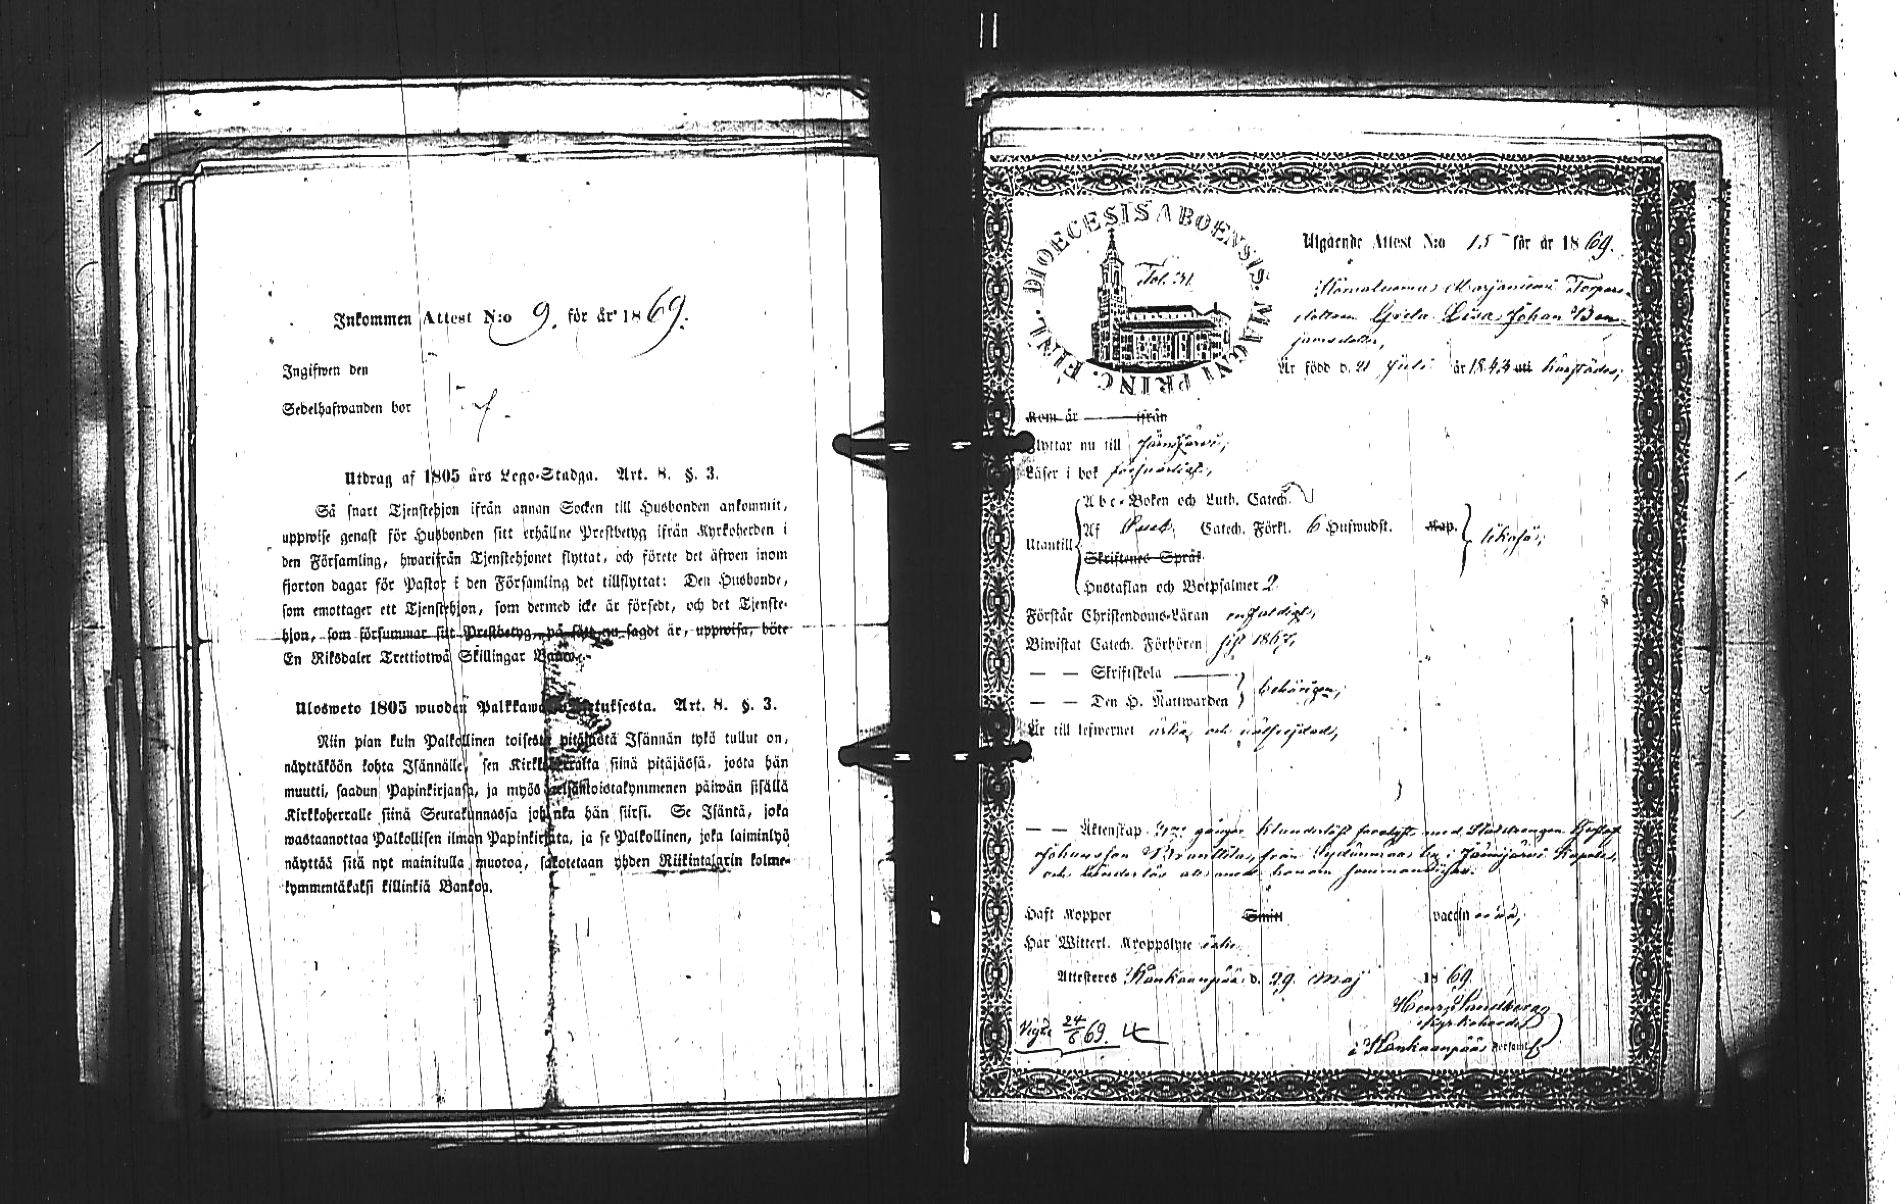 Inkommen Attest N:o 9. för år 1869.
Ingifwen den
Sedelhafwanden bor
Utdrag af 1805 års Lego-Stadga. Art. 8. §. 3.
Så snart Tjenstehjon ifrån annan Socken till Husbonden ankommit,
uppwise genast för Husbonden sitt erhållne Prestbetyg ifrån Kyrkoherden i
den Församling, hwarifrån Tjenstehjonet flyttat, och förete det äfwen inom
fjorton dagar för Pastor i den Församling det tillflyttat: Den Husbonde,
som emottager ett Tjenstehjon, som dermed icke är försedt, och det Tjenste-
hjon, som försummar sitt Prestbetyg, på sätt nu sagdt är, uppwisa, böte
En Riksdaler Trettiotwå Skillingar Banco.
Ulosweto 1805 wuoden Palkkawäen Asetuksesta. Art. 8. §. 3.
Niin pian kuin Palkollinen toisesta pitäjästä Isännän tykö tullut on,
näyttäköön kohta Isännälle, sen Kirkkoherralta siinä pitäjässä, josta hän
muutti, saadun Papinkirjansa, ja myös neljäntoistakymmenen päiwän sisällä
Kirkkoherralle siinä Seurakunnassa johonka hän siirsi. Se Isäntä, joka
wastaanottaa Palkollisen ilman Papinkirjata, ja se Palkollinen, joka laiminlyö
näyttää sitä nyt mainitulla muotoa, sakotetaan yhden Riikintalarin kolme-
kymmentäkaksi killinkiä Bankoa.
DIOECESIS ABOENSIS. MAGNI PRINC. FINL.
Fol. 31
Utgående Attest N:o 15 för år 1869.
Torpare-
dottern Greta Lisa Johan Ben-
jamsdotter,
Är född d. 21 Juli år 1843 uti härstädes;
Kom år ifrån
Flyttar nu till Jämijärvi;
Läser i bok försvarligt,
Abc-Boken och Luth. Catech.
Utantill Af Catech. Förkl. 6 Hufwudst. Kap.
Skriftenes Språk
Hustaflan och Botpsalmer 2
Förstår Christendoms-Läran enfaldigt,
Biwistat Catech. Förhören sist 1867,
— — Skriftskola
— — Den H. Nattwarden behörigen;
Är till lefwernet ärlig och välfrejdad,
— — Äktenskap gånger klanderlöst med Gustaf
Johansson från i Jämijärvi Kapell,
och honom
Haft Koppor Smitt vaccin
Har Witterl. Kroppslyte
Attesteres Kankaanpää d. 29 Maj 1869
Kyrkoherde
i Kankaanpää Församl.
Vigde 24/6 69.